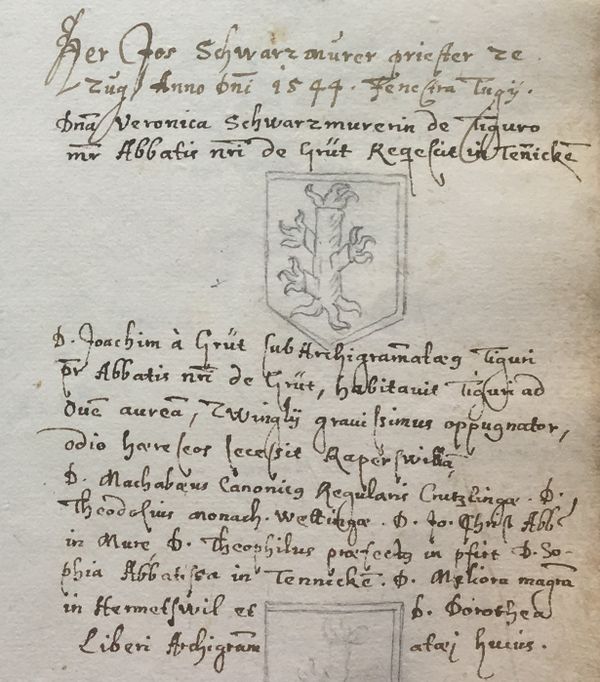 Her Jos Schwarzmurer priester ze
Zug Anno Dnī 1544. Fenestra Tugij.
Dnā Veronica Schwarzmurerin de Tiguro
mr̄ Abbatis nr̄i de Grüt Reqescit in Tenickē
D. Joachim à Grüt sub Archigram̄atæg Tiguri
pr̄ Abbatis nr̄i de Grüt, habitavit Tiguri ad
Ovē aureā, Zwinglij gravissimus oppugnator,
odio hæreseos secessit Raperswillā
D. Machabæus Canonicg Regularis Crutzlingæ. D.
Theodosius monach. Wettingæ. D. Jo. Christ Abb
in Mure D. Theophilus præfectg in pfirt D. So-
phia Abbatissa in Tennickē. D. Meliora magrā
in Hermetswil et D. Dorothea
Liberi Archigram atæi huius.